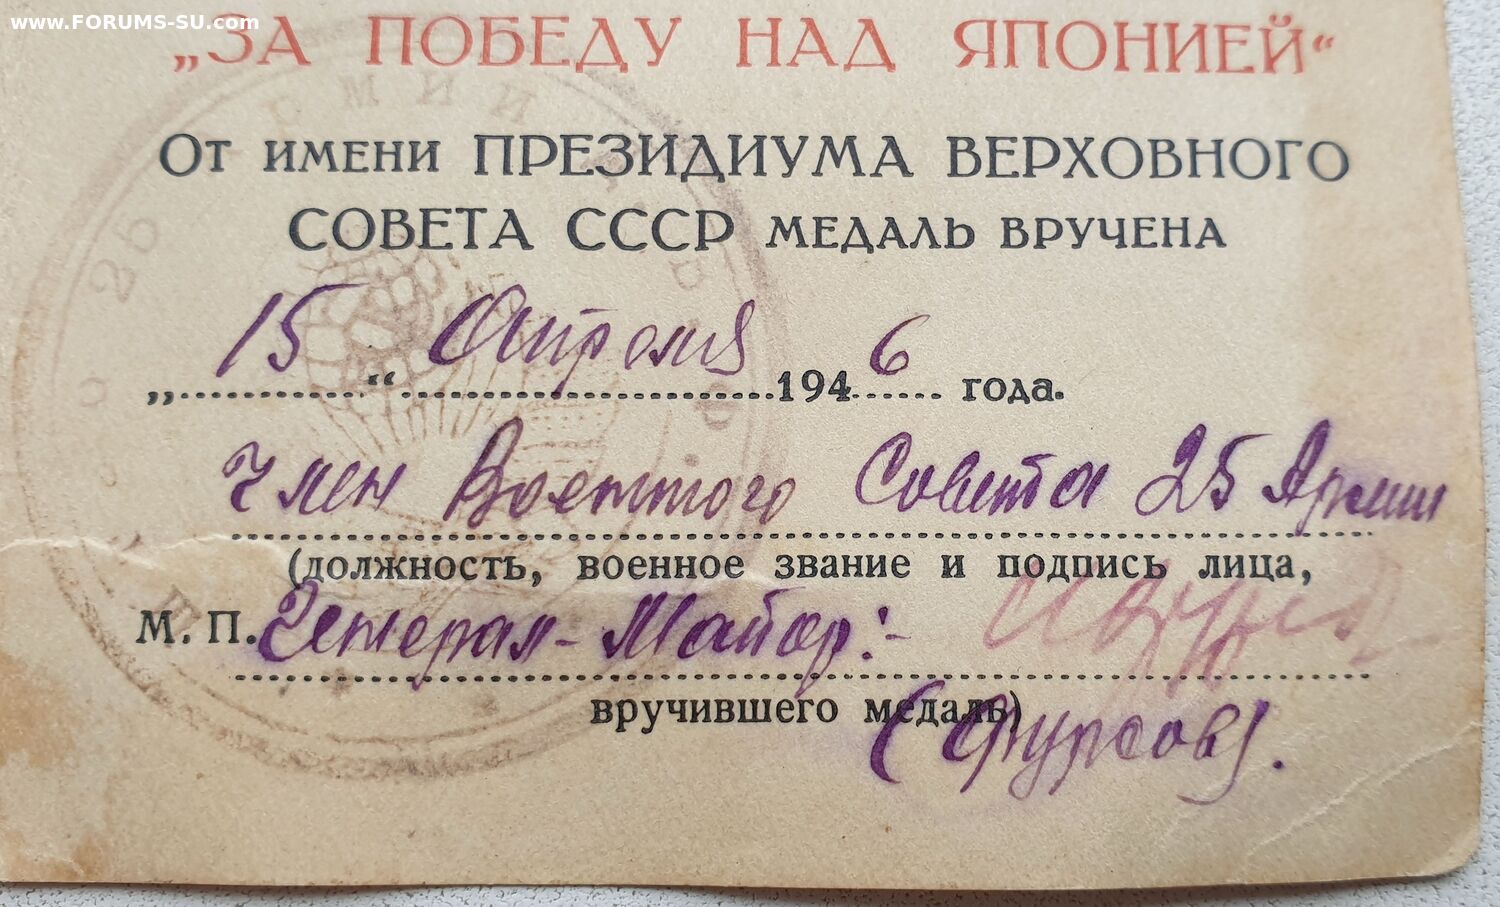 www.FORUMS-SU.com
„ЗА ПОБЕДУ НАД ЯПОНИЕЙ“
От имени ПРЕЗИДИУМА ВЕРХОВНОГО
СОВЕТА СССР МЕДАЛЬ ВРУЧЕНА
„15“ Апреля 1946 года.
Член Военного Совета 25 Армии
(должность, военное звание и подпись лица,
М. П. Генерал-Майор:-
вручившего медаль)
(Фурсов).